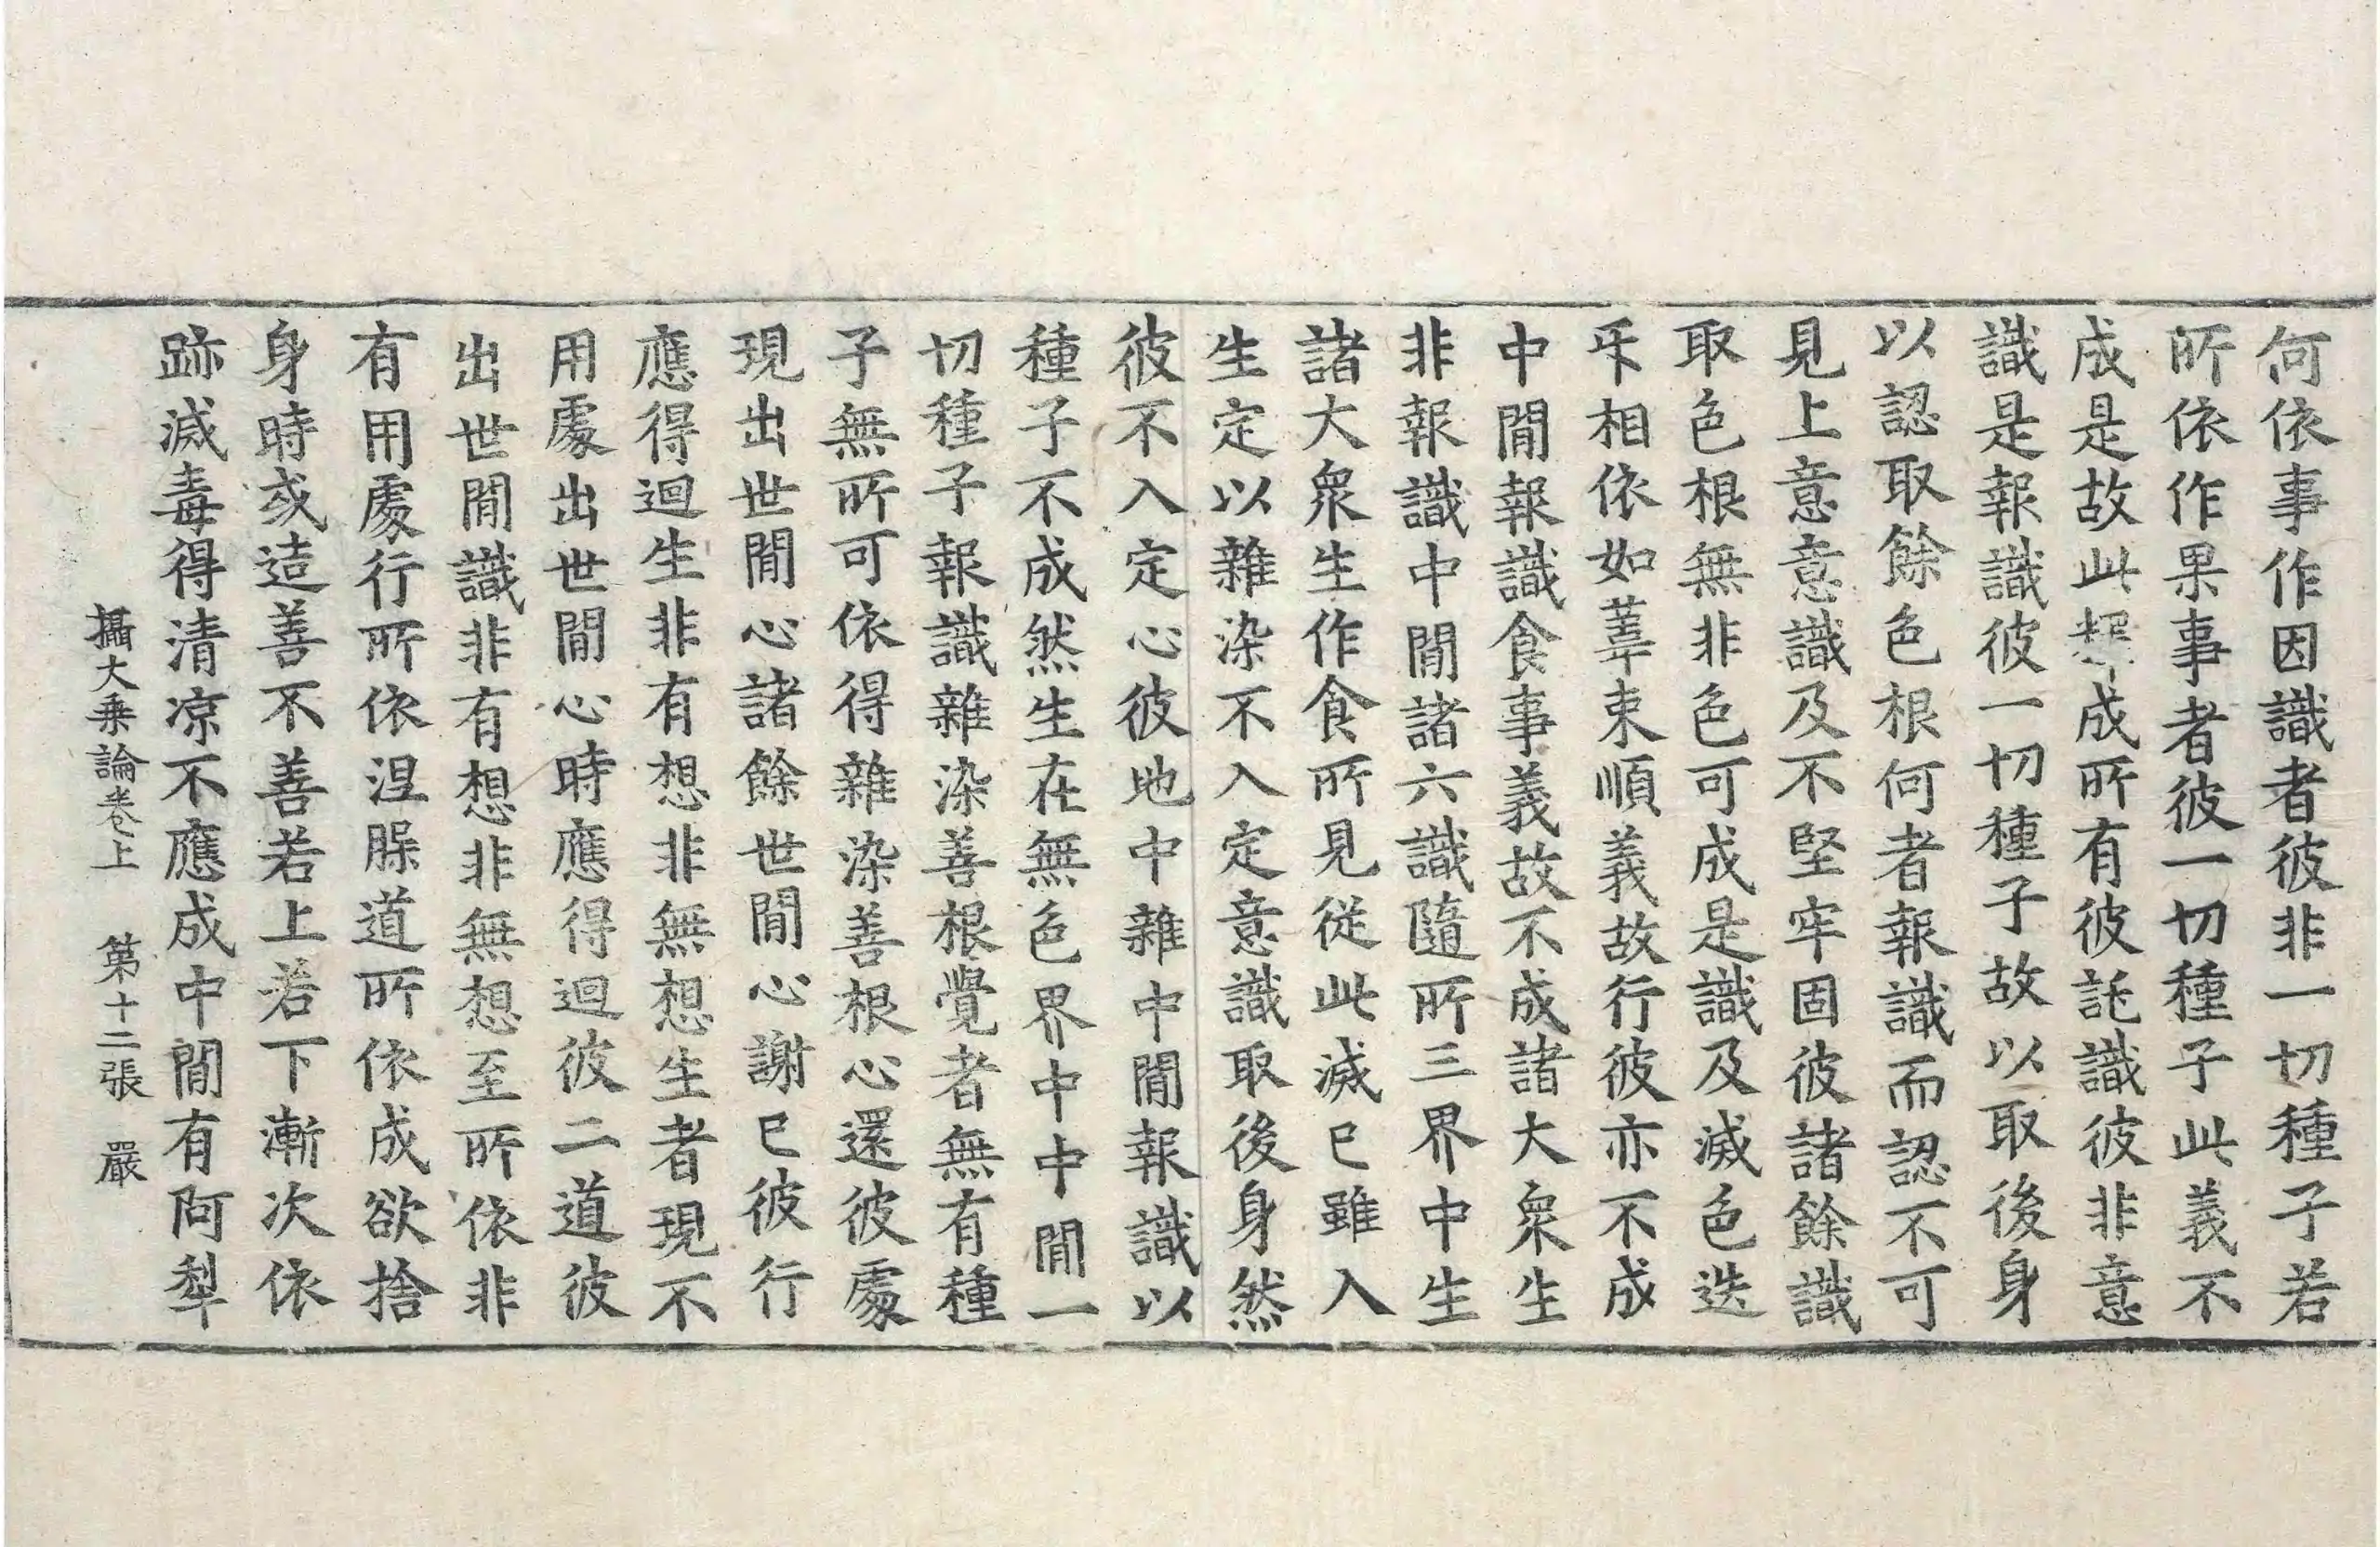 何依事作因識者彼非一切種子若
所依作果事者彼一切種子此義不
成是故此成所有彼託識彼非意
識是報識彼一切種子故以取後身
以認取餘色根何者報識而認不可
見上意意識及不堅牢固彼諸餘識
取色根無非色可成是識及滅色迭
㸦相依如葦束順義故行彼亦不成
中間報識食事義故不成諸大衆生
非報識中間諸六識隨所三界中生
諸大衆生作食所見從此滅已雖入
生定以雜染不入定意識取後身然
彼不入定心彼地中雜中間報識以
種子不成然生在無色界中中間一
切種子報識雜染善根覺者無有種
子無所可依得雜染善根心還彼處
現出世間心諸餘世間心謝已彼行
應得迴生非有想非無想生者現不
用處出世間心時應得迴彼二道彼
出世間識非有想非無想至所依非
有用處行所依涅槃道所依成欲捨
身時或造善不善若上若下漸次依
跡滅毒得清涼不應成中間有阿犁
攝大乘論卷上　第十二張　嚴